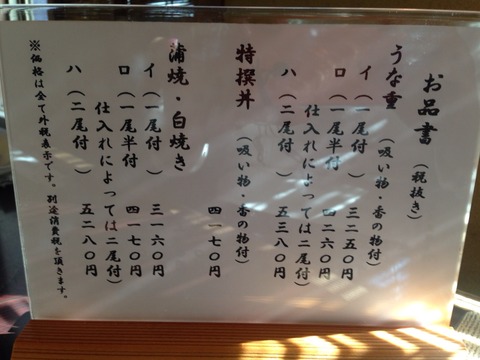 お品書（税抜き）
うな重（吸い物・香の物付）
イ（一尾付）三二五〇円
ロ（一尾半付 四二六〇円
仕入れによっては二尾付）
ハ（二尾付 ）五三八〇円
特撰丼（吸い物 香の物付）
四一七〇円
蒲焼・白焼き
イ（一尾付）三一六〇円
ロ（一尾半付 四一七〇円
仕入れによっては二尾付）
ハ（二尾付 ）五二八〇円
※価格は全て外税表示です。別途消費税を頂きます。